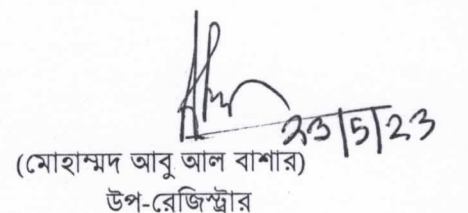 23/5/23
(মোহাম্মদ আবু আল বাশার)
উপ-রেজিস্ট্রার